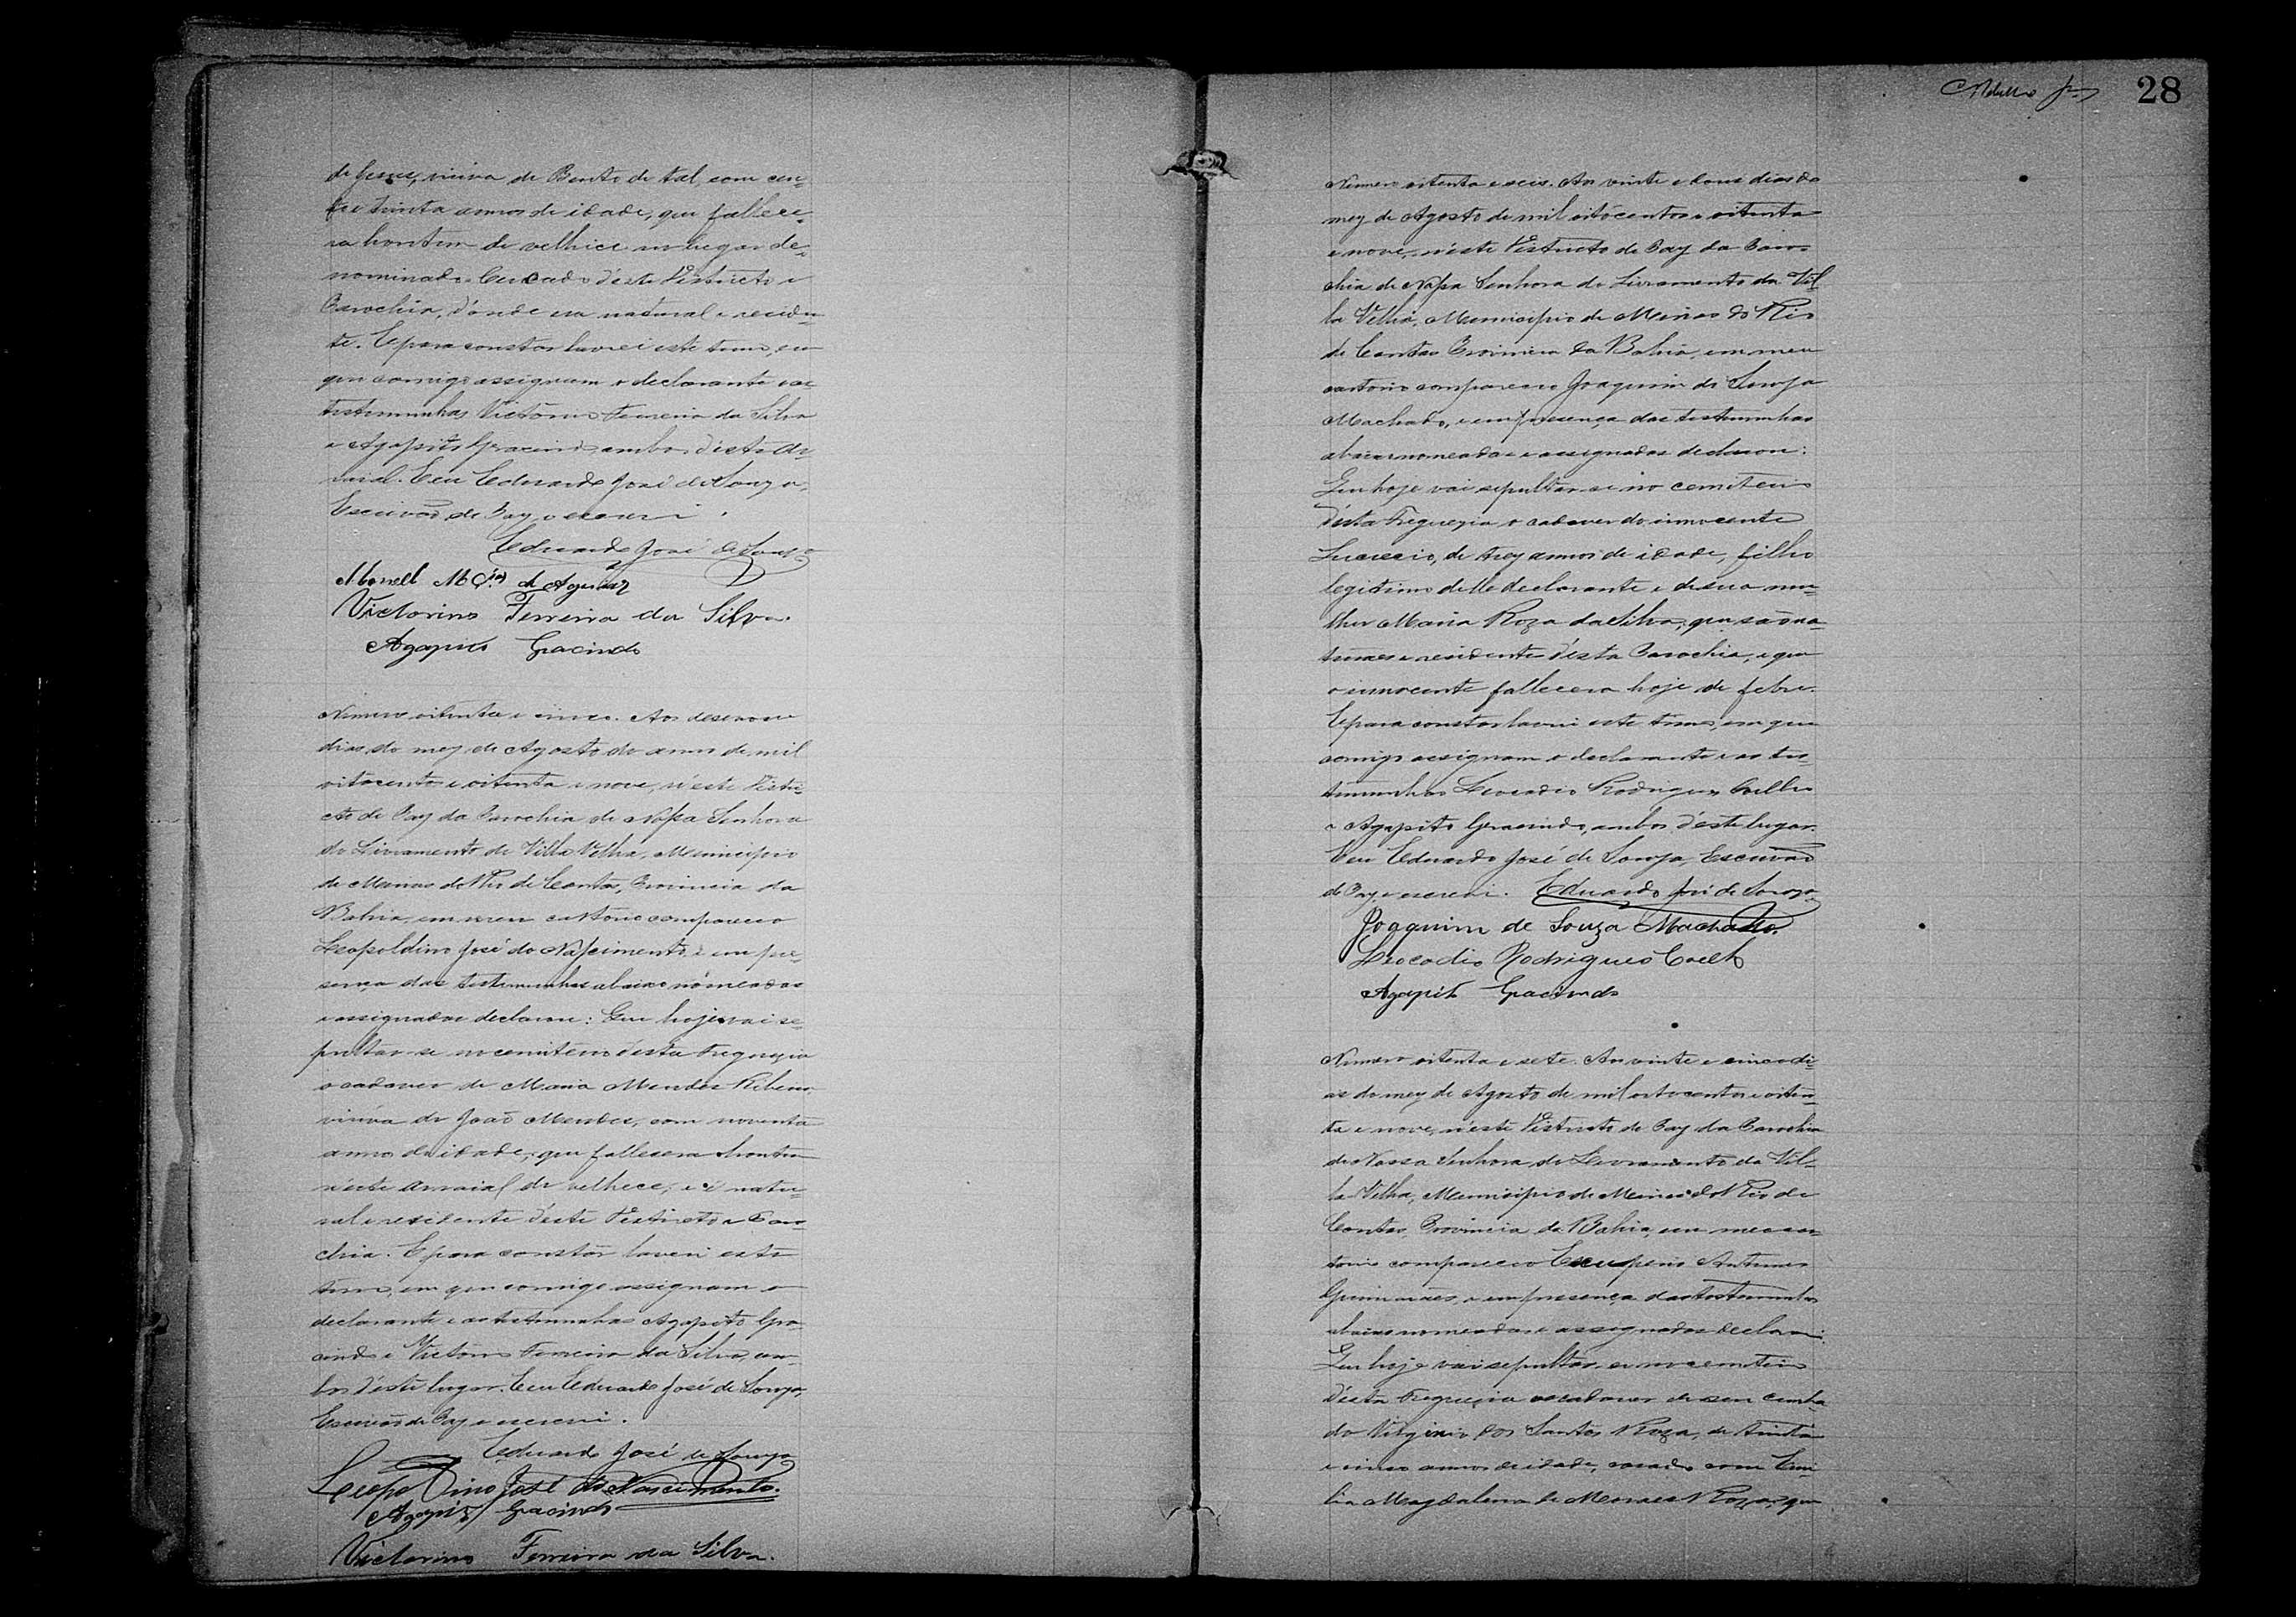 de Jesus, viuva de Bento de tal, com cen-
to e trinta annos de idade, que fallece-
ra hontem de velhice no lugar de-
nominado d'este Districto e
Parochia, d'onde era natural e residen-
te. E para constar lavrei este termo, em
que comigo assignam o declarante e as
testemunhas Victorino Ferreira da Silva
e Agapito Gracindo, ambos d'este Ar-
raial. Eu Eduardo José de Souza,
Escrivão de Paz o escrevi.
Eduardo José de Souza
Manoel M de Aguiar
Victorino Ferreira da Silva.
Agapito Gracindo
Numero oitenta e cinco. Aos desenove
dias do mez de Agosto do anno de mil
oitocentos e oitenta e nove, n'este Distri-
cto de Paz da Parochia de Nossa Senhora
do Livramento de Villa Velha, Municipio
de Minas do Rio de Contas, Provincia da
Bahia, em meu cartorio compareceo
Leopoldino José do Nascimento, e em pre-
sença das testemunhas abaixo nomeadas
e assignadas declarou: Que hoje vai se-
pultar-se no cemiterio desta Freguezia
o cadaver de Maria Mendes Ribeiro,
viuva de João Mendes, com noventa
annos de idade, que fallecera hontem
n'este arraial de velhece, e é natu-
ral e residente d'este Districto e Paro-
chia. E para constar lavrei este
termo, em que comigo assignam o
declarante e as testemunhas Agapito Gra-
cindo e Victorino Ferreira da Silva, am-
bos d'este lugar. Eu Eduardo José de Souza,
Escrivão de Paz o escrevi.
Eduardo José de Souza
Leopoldino José do Nascimento.
Agapito Gracindo
Victorino Ferreira da Silva.
28
Numero oitenta e seis. Aos vinte e dous dias do
mez de Agosto de mil oitocentos e oitenta
e nove, n'este Districto de Paz da Paro-
chia de Nossa Senhora do Livramento da Vil-
la Velha, Municipio de Minas do Rio
de Contas Provincia da Bahia, em meu
cartorio compareceo Joaquim de Souza
Machado, e em presença das testemunhas
abaixo nomeadas e assignadas declarou:
Que hoje vai sepultar-se no cemiterio
d'esta Freguezia o cadaver do innocente
Lucrecio, de trez annos de idade, filho
legitimo delle declarante e de sua mu-
lher Maria Roza da Silva, que são na-
turaes e residentes d'esta Parochia, e que
o innocente fallecera hoje de febre.
E para constar lavrei este termo, em que
comigo assignam o declarante e as tes-
temunhas Leocadio Rodrigues Coelho
e Agapito Gracindo, ambos d'este lugar.
Eu Eduardo José de Souza, Escrivão
de Paz o escrevi. Eduardo José de Souza
Joaquim de Souza Machado.
Leocadio Rodrigues Coelho
Agapito Gracindo
Numero oitenta e sete. Aos vinte e cinco di-
as do mez de Agosto de mil oitocentos e oiten-
ta e nove, n'este Districto de Paz da Parochia
de Nossa Senhora do Livramento da Vil-
la Velha, Municipio de Minas do Rio de
Contas, Provincia da Bahia, em meu car-
torio compareceo Exuperio Antunes
Guimarães, e em presença das testemunhas
abaixo nomeadas e assignadas declarou:
Que hoje vai sepultar-se no cemiterio
d'esta Freguezia o cadaver de seu cunha-
do Virginio dos Santos Roza, de trinta
e cinco annos de idade, casado com Emi-
lia Magdalena de Moraes Roza, que